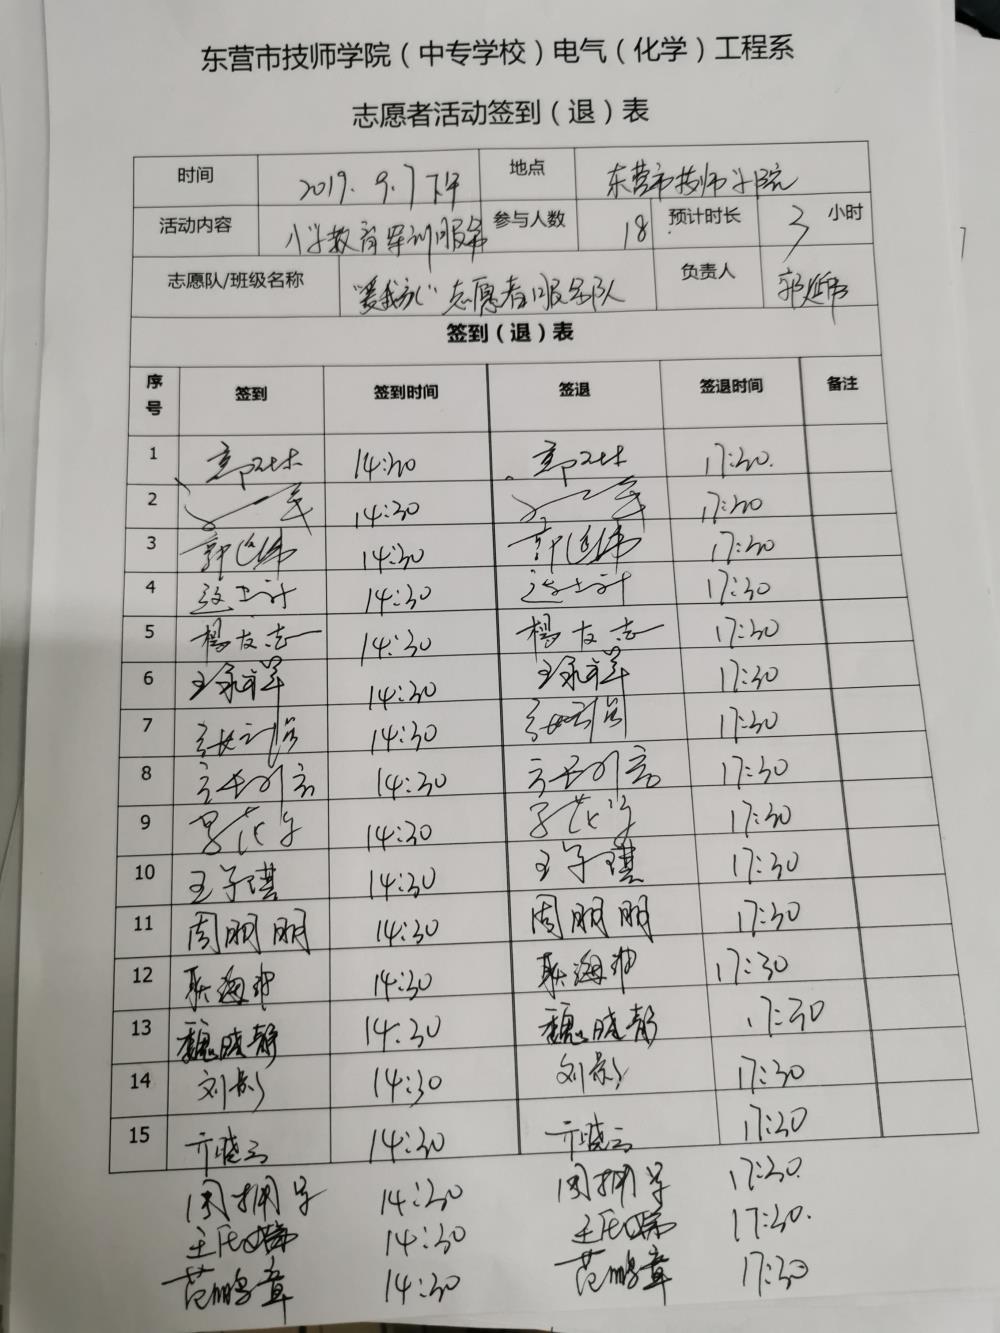 东营市技师学院（中专学校）电气（化学）工程系
志愿者活动签到（退）表
时间 2019.9.7下午 地点 东营市技师学院
活动内容 入学教育军训服务 参与人数 18 预计时长 3 小时
志愿队/班级名称 志愿者服务队 负责人 郭延伟
签到（退）表
序号 签到 签到时间 签退 签退时间 备注
1 14:30 17:30.
2 14:30 17:30
3 郭延伟 14:30 郭延伟 17:30
4 14:30 17:30
5 杨友志 14:30 杨友志 17:30
6 王永祥 14:30 王永祥 17:30
7 14:30 17:30
8 14:30 17:30
9 14:30 17:30
10 王子琪 14:30 王子琪 17:30
11 周朋朋 14:30 周朋朋 17:30
12 14:30 17:30
13 魏晓静 14:30 魏晓静 17:30
14 刘彩 14:30 刘彩 17:30
15 亓晓云 14:30 亓晓云 17:30
14:30 17:30.
14:30 17:30.
范鹏章 14:30 范鹏章 17:30